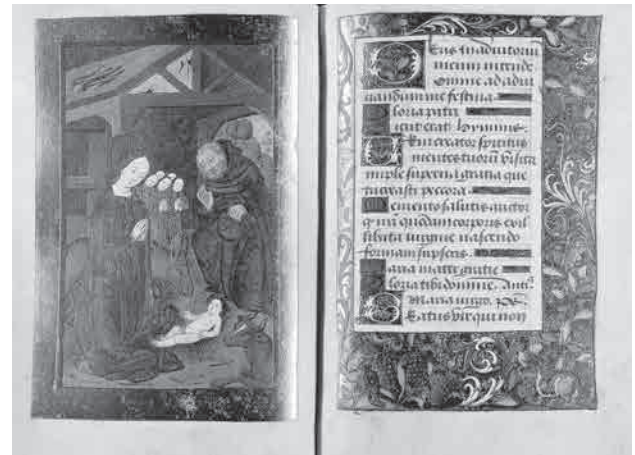 Eus in adiutoriu
meum intende
Domine ad adiu
uandum me festina
loria patri
icut erat hymnus.
Eni creator spiritus
mentes tuorum visita
imple superna gratia que
tu creasti pectora
emento salutis auctor
quedam corporis
illibata virgine nascendo
formam supseris
aria mater gratie
loria tibi domine Ant
Maria virgo. ps.
Eatus vir qui non